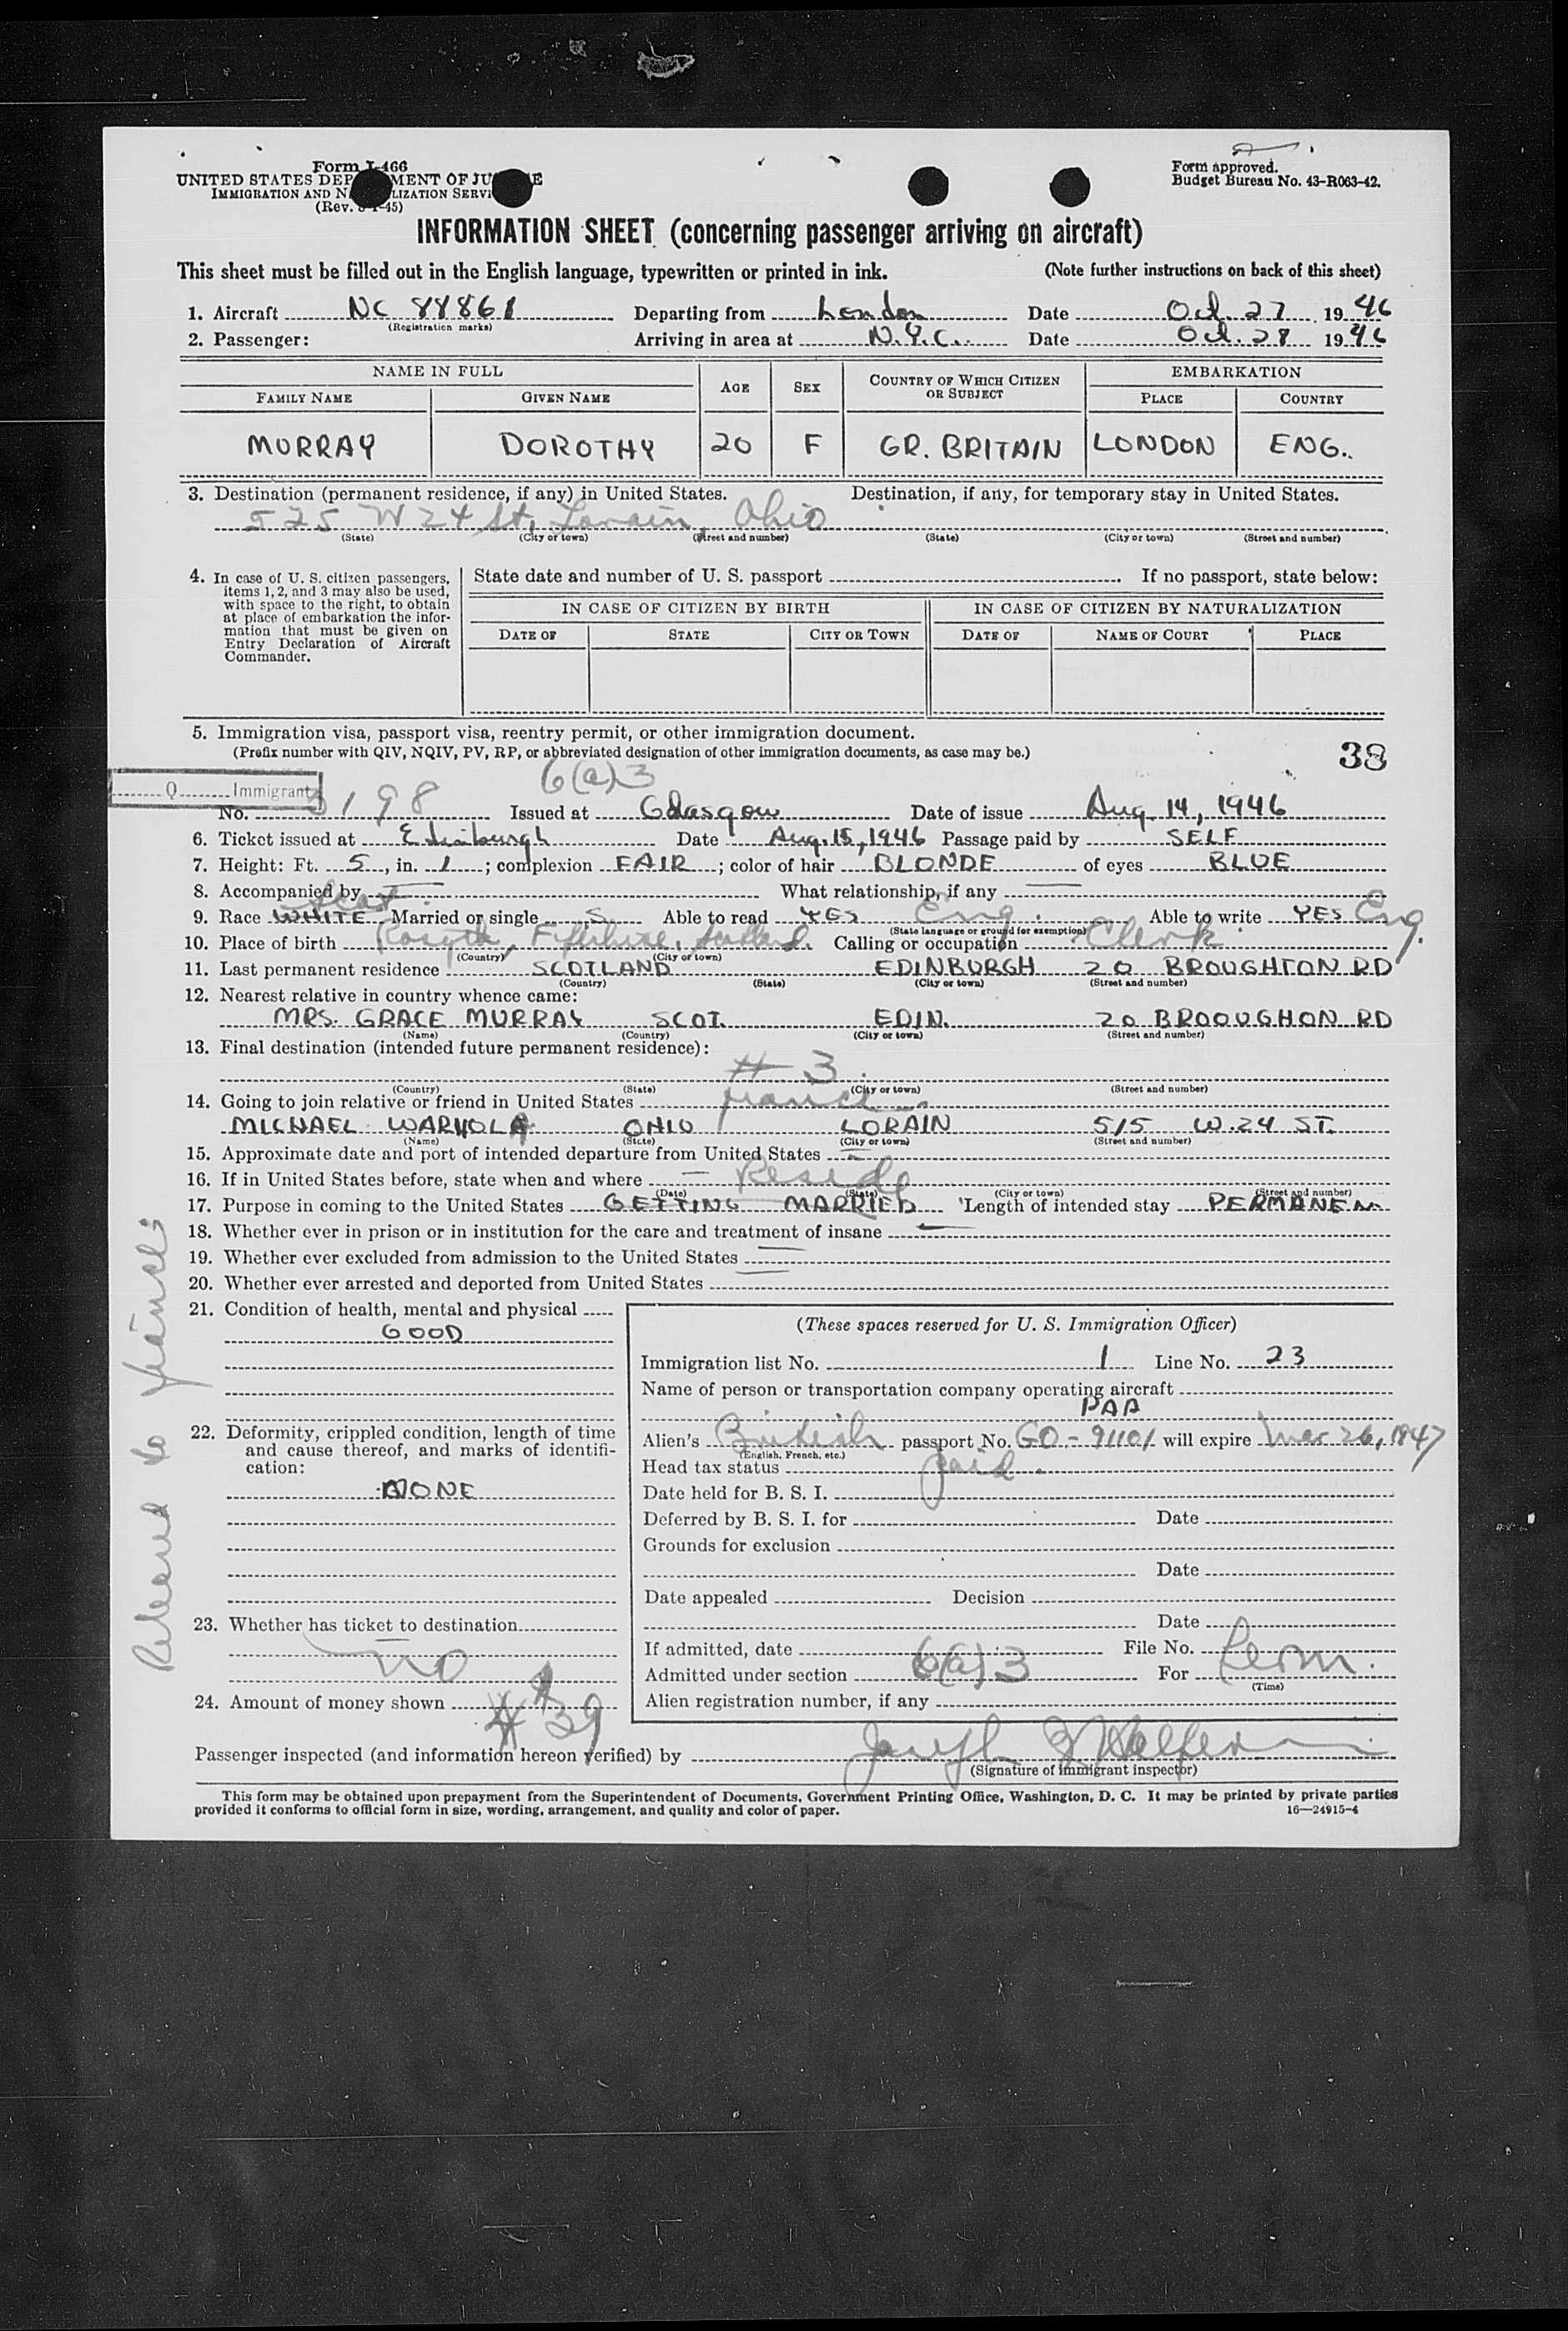 Form I-466
UNITED STATES DEP MENT OF JU E
IMMIGRATION AND N LIZATION SERVI
(Rev. -45)
Form approved.
Budget Bureau No. 43-R063-42.
INFORMATION SHEET (concerning passenger arriving on aircraft)
This sheet must be filled out in the English language, typewritten or printed in ink. (Note further instructions on back of this sheet)
1. Aircraft NC 88861 Departing from London Date Oct. 27 1946
(Registration marks)
2. Passenger: Arriving in area at N.Y.C. Date Oct. 28 1946
NAME IN FULL AGE SEX COUNTRY OF WHICH CITIZEN OR SUBJECT EMBARKATION
FAMILY NAME GIVEN NAME PLACE COUNTRY
MURRAY DOROTHY 20 F GR. BRITAIN LONDON ENG.
3. Destination (permanent residence, if any) in United States. Destination, if any, for temporary stay in United States.
525 W 24 St, Lorain, Ohio
(State) (City or town) (Street and number) (State) (City or town) (Street and number)
4. In case of U. S. citizen passengers, items 1, 2, and 3 may also be used, with space to the right, to obtain at place of embarkation the information that must be given on Entry Declaration of Aircraft Commander.
State date and number of U. S. passport If no passport, state below:
IN CASE OF CITIZEN BY BIRTH IN CASE OF CITIZEN BY NATURALIZATION
DATE OF STATE CITY OR TOWN DATE OF NAME OF COURT PLACE
5. Immigration visa, passport visa, reentry permit, or other immigration document.
(Prefix number with QIV, NQIV, PV, RP, or abbreviated designation of other immigration documents, as case may be.)
38
6(a)3
Q Immigrant
No. 3198 Issued at Glasgow Date of issue Aug 14, 1946
6. Ticket issued at Edinburgh Date Aug. 15, 1946 Passage paid by SELF
7. Height: Ft. 5, in. 1; complexion FAIR; color of hair BLONDE of eyes BLUE
8. Accompanied by — What relationship, if any —
Scot.
9. Race WHITE Married or single S Able to read YES Eng. Able to write YES Eng.
(State language or ground for exemption)
10. Place of birth Rosyth, Fifeshire, Scotland. Calling or occupation Clerk
(Country) (City or town)
11. Last permanent residence SCOTLAND EDINBURGH 20 BROUGHTON RD
(Country) (State) (City or town) (Street and number)
12. Nearest relative in country whence came:
MRS. GRACE MURRAY SCOT. EDIN. 20 BROOUGHON RD
(Name) (Country) (City or town) (Street and number)
13. Final destination (intended future permanent residence):
# 3
(Country) (State) (City or town) (Street and number)
14. Going to join relative or friend in United States fiance
MICHAEL WARHOLA OHIO LORAIN 515 W. 24 ST.
(Name) (State) (City or town) (Street and number)
15. Approximate date and port of intended departure from United States —
16. If in United States before, state when and where — Reside
(Date) (State) (City or town) (Street and number)
17. Purpose in coming to the United States GETTING MARRIED Length of intended stay PERMANEN
18. Whether ever in prison or in institution for the care and treatment of insane —
19. Whether ever excluded from admission to the United States —
20. Whether ever arrested and deported from United States —
21. Condition of health, mental and physical
GOOD
22. Deformity, crippled condition, length of time and cause thereof, and marks of identification:
NONE
23. Whether has ticket to destination
no
24. Amount of money shown $39
(These spaces reserved for U. S. Immigration Officer)
Immigration list No. 1 Line No. 23
Name of person or transportation company operating aircraft
PAA
Alien's British passport No. GO-91101 will expire Mar 26, 1947
(English, French, etc.)
Head tax status paid
Date held for B. S. I.
Deferred by B. S. I. for Date
Grounds for exclusion
Date
Date appealed Decision
Date
If admitted, date File No.
Admitted under section 6(a)3 For Perm.
(Time)
Alien registration number, if any
Passenger inspected (and information hereon verified) by
(Signature of immigrant inspector)
This form may be obtained upon prepayment from the Superintendent of Documents, Government Printing Office, Washington, D. C. It may be printed by private parties
provided it conforms to official form in size, wording, arrangement, and quality and color of paper. 16—24915-4
Released to fiance